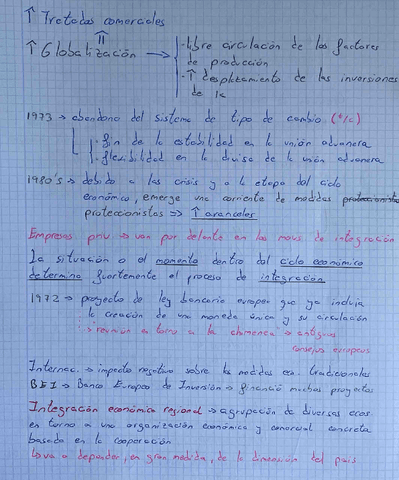 ↑ Tratados comerciales
↑ Globalización → - libre circulación de los factores
de producción
- ↑ desplazamiento de las inversiones
de la
1973 → abandono del sistema de tipo de cambio (t/c)
- fin de la estabilidad en la unión aduanera
- flexibilidad en la divisa de la unión aduanera
1980's → debido a las crisis y a la etapa del ciclo
económico, emerge una corriente de medidas proteccionis
proteccionistas => ↑ aranceles
Empresas priv → van por delante en los movs. de integración
La situación o el momento dentro del ciclo económico
determina fuertemente el proceso de integración
1972 → proyecto de ley bancario europeo que ya incluía
la creación de una moneda única y su circulación
→ "reunión en torno a la chimenea" → antiguos
consejos europeos
Internac. → impacto negativo sobre las medidas eco. tradicionales
BEI → Banco Europeo de Inversión → financió muchos proyectos
Integración económica regional → agrupación de diversas ecos
en torno a una organización económica y comercial concreta
basada en la cooperación
↳ va a depender, en gran medida, de la dimensión del país